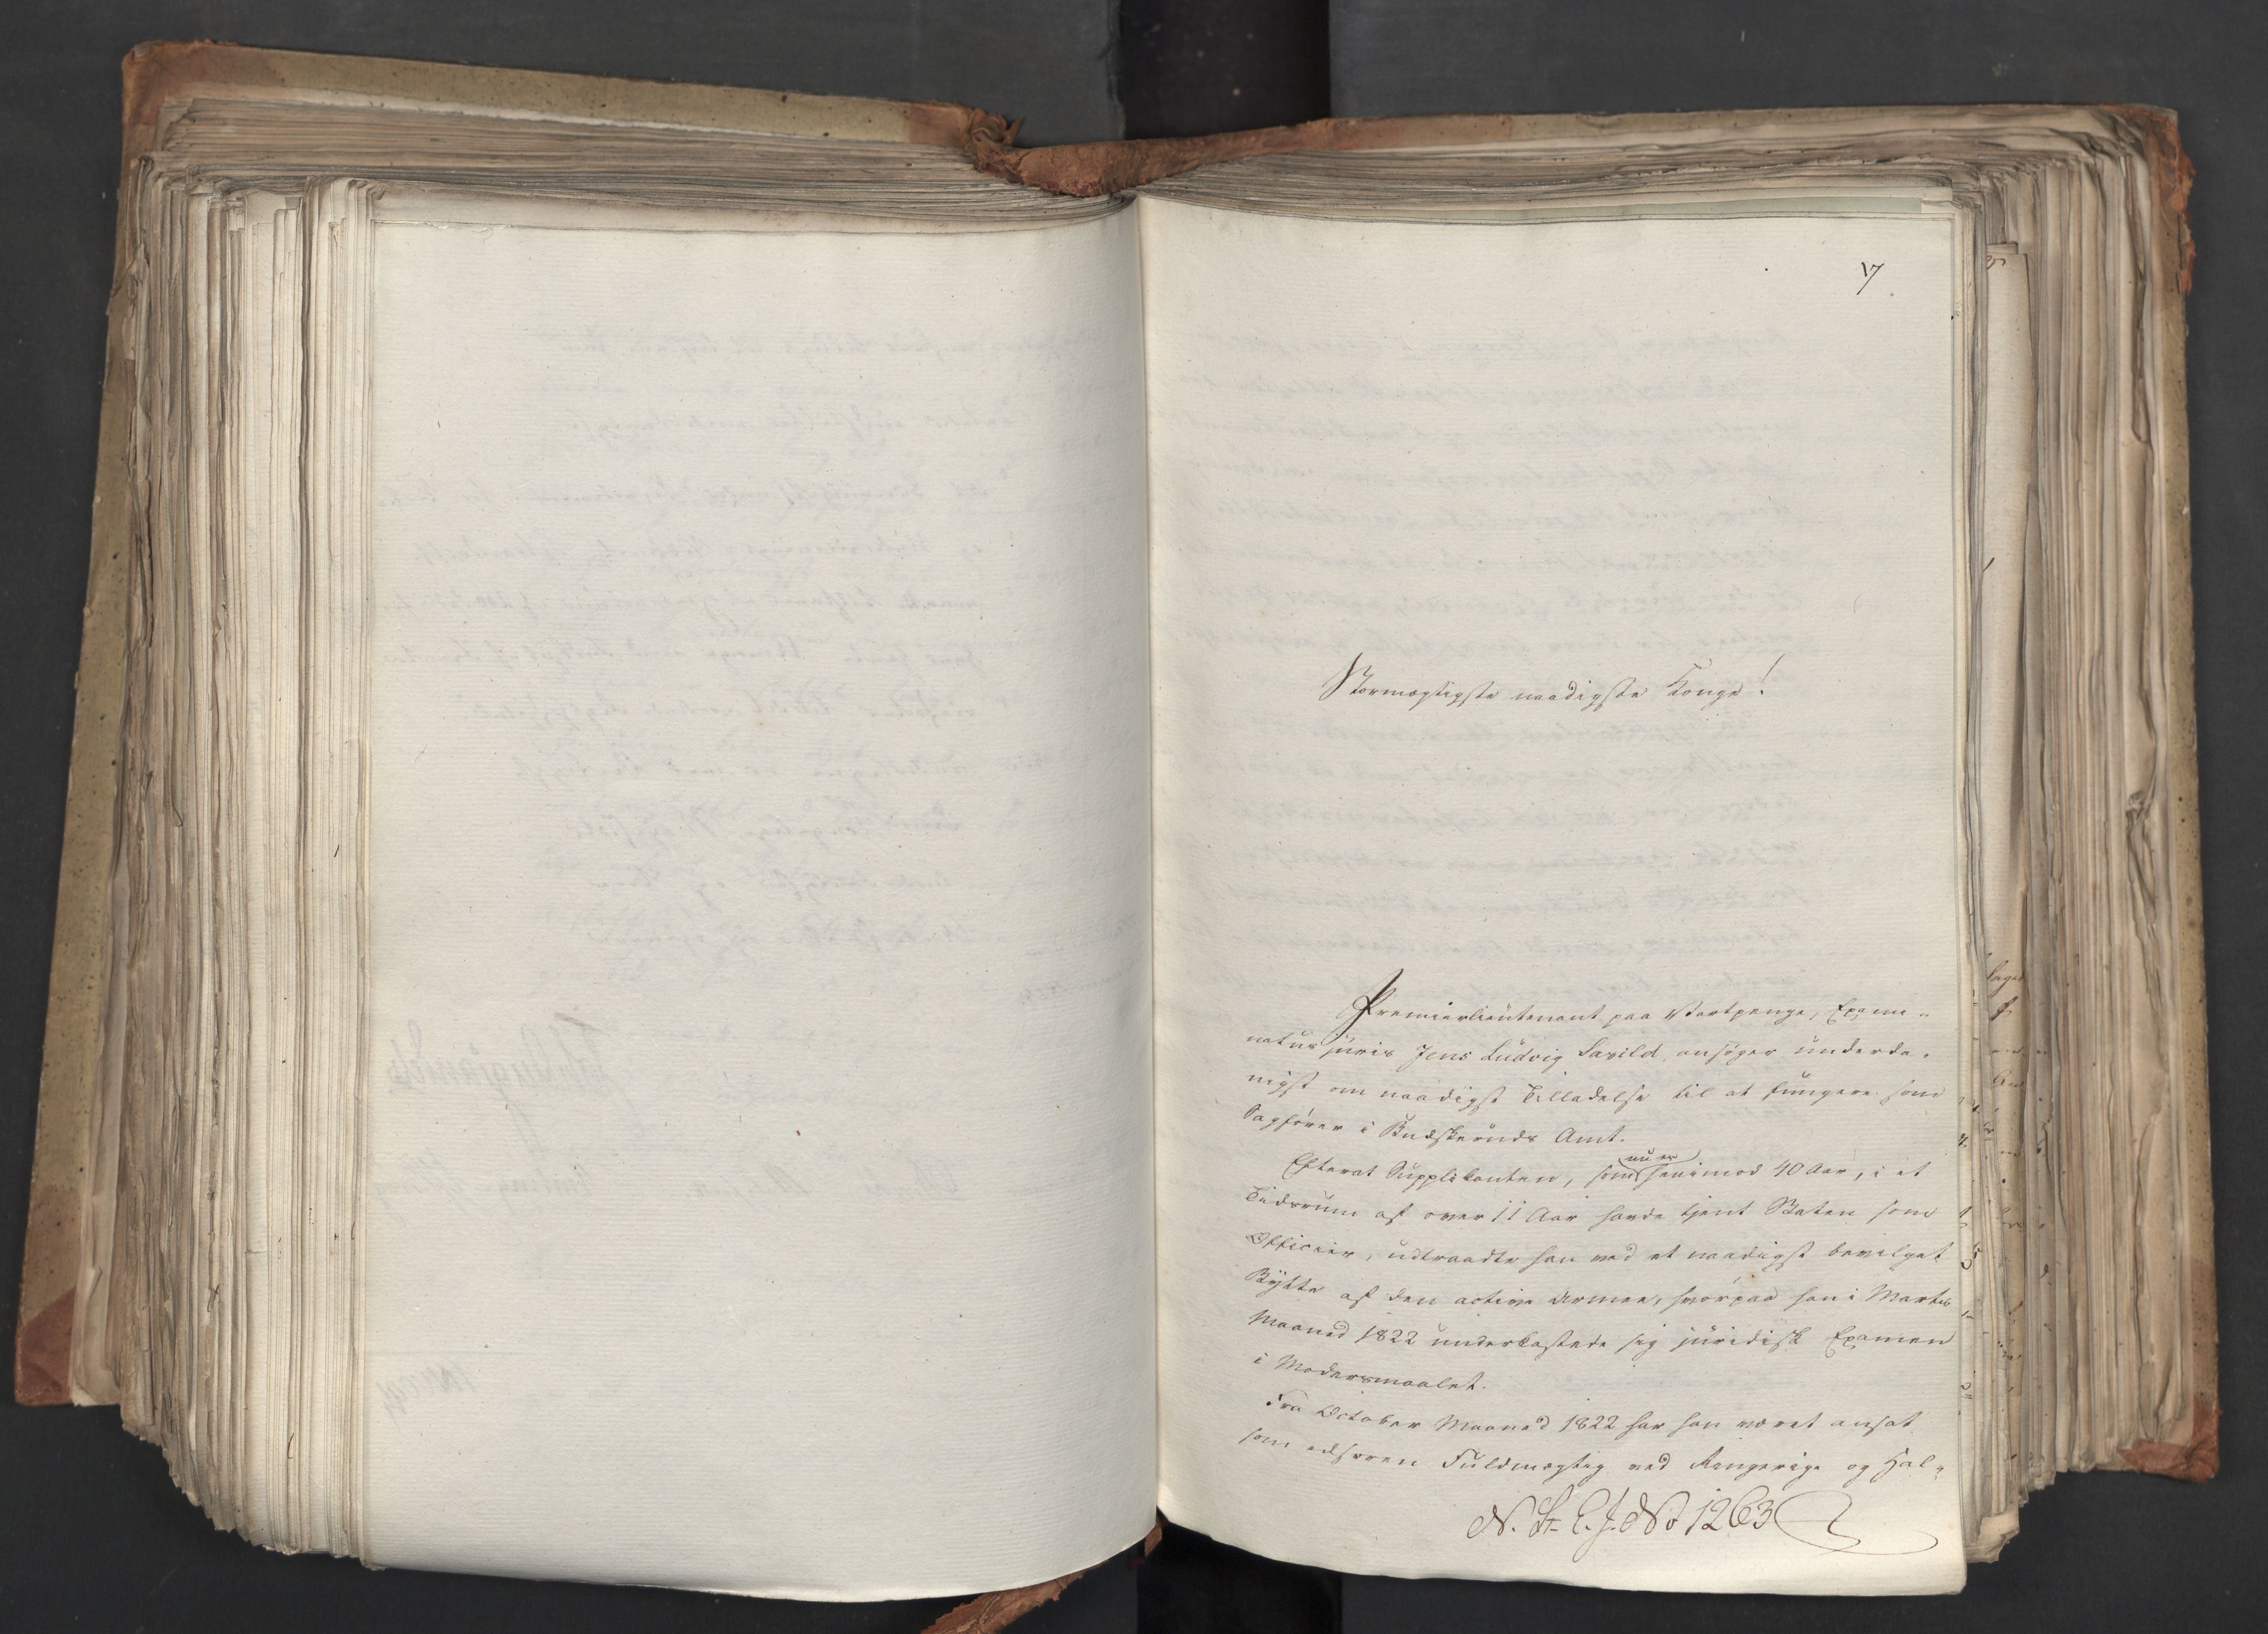 17
Stormægtigste naadigste Konge!
Premierlieutenant paa Vartpenge, Exami-
natus juris Jens Ludvig Savild, ansøger underda-
nigst om naadigst Tilladelse til at fungere som
Sagfører i Budskeruds Amt.
Efterat Supplikanten, som nu er henimod 40 Aar, i et
Tidsrum af over 11 Aar havde tjent Staten som
Officier, udtraadte han ved et naadigst bevilget
Bytte af den active Armee, hvorpaa han i Marts
Maaned 1822 underkastede sig juridisk Examen
i Modersmaalet.
Fra October Maaned 1822 har han været ansat
som edsvoren Fuldmægtig ved Ringerige og Hal-
N. St. E. J. No 1263